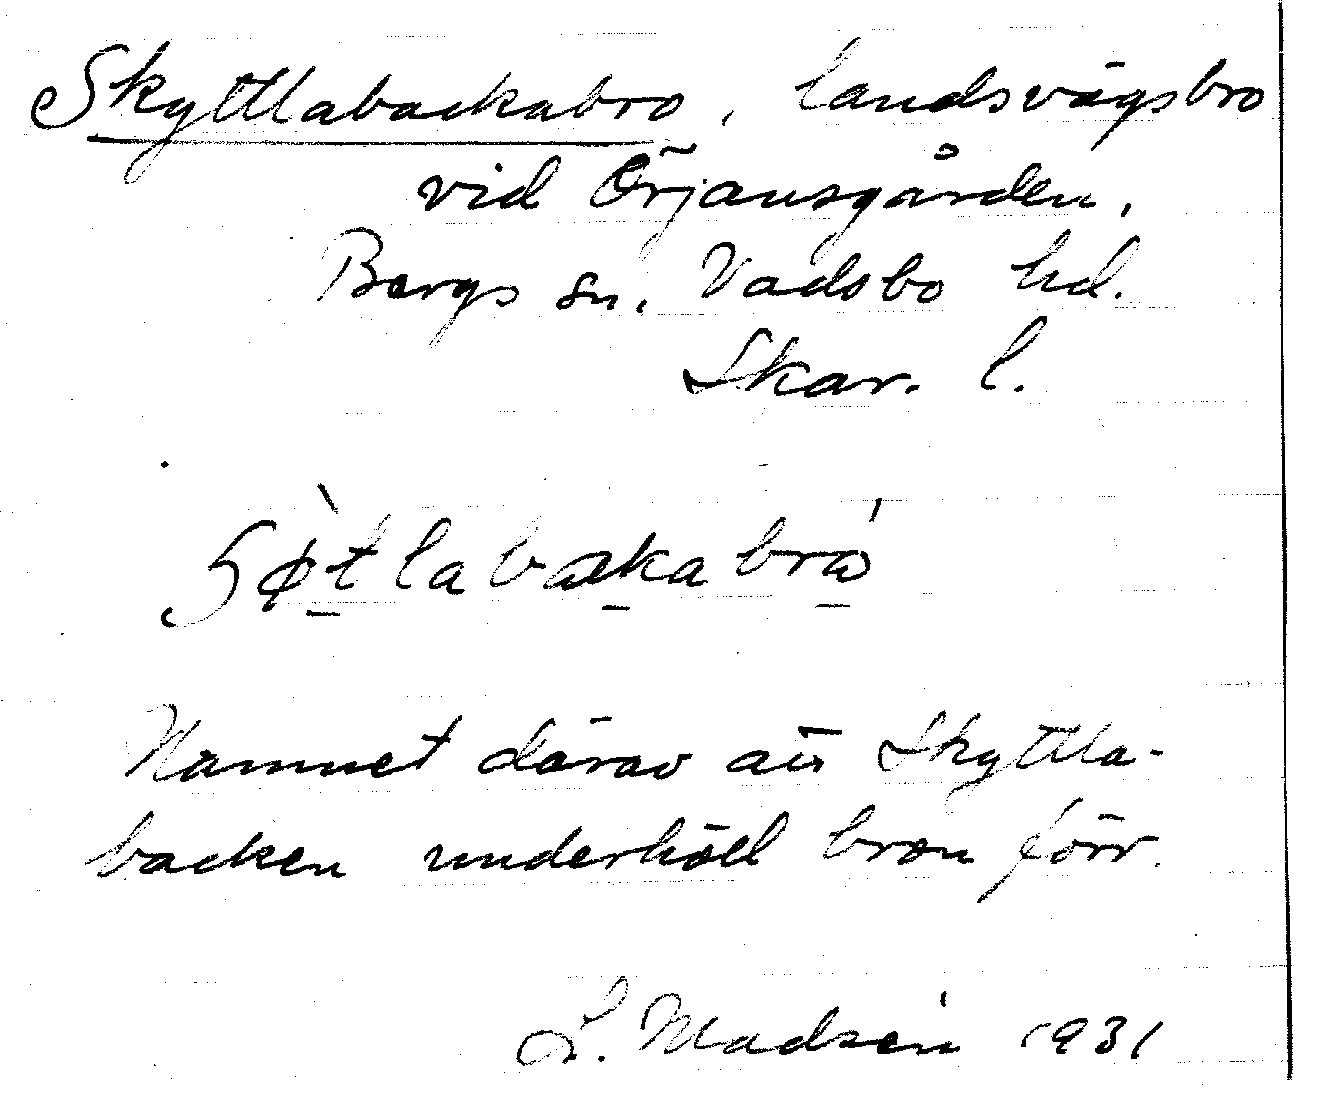 Skyttlabackabro, landsvägsbro
vid Örjansgården,
Bergs sn, Vadsbo hd.
Skar. l.
Namnet därav att Skyttla-
backen underhöll bron förr.
L. Madsén 1931